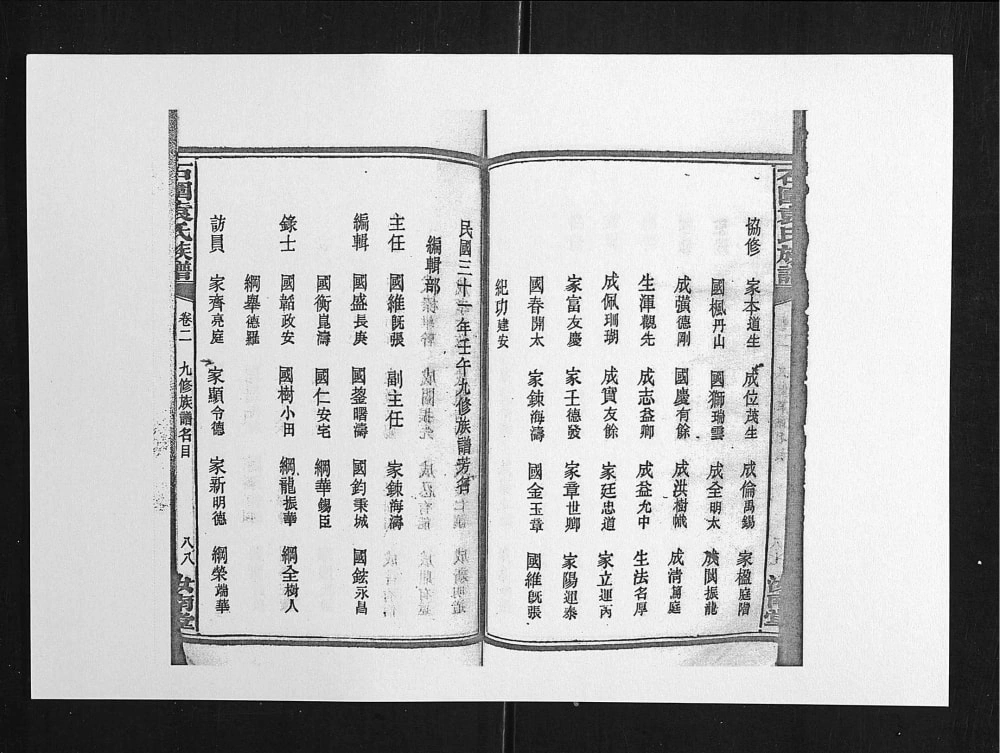 協修 家本道生 成位茂生 成倫禹錫 家楹庭階
國楓丹山 國獅瑞雲 成全明太 成閩振龍
成彊德剛 國慶有餘 成洪樹幟 成清篤庭
生渾觀先 成志益卿 成益允中 生法名厚
成佩珊瑚 成寶友餘 家廷忠道 家立運丙
家富友慶 家王德發 家章世卿 家陽運泰
國春開太 家鍊海濤 國金玉章 國維旣張
紀功建安
民國三十一年壬午九修族譜芳名
編輯部
主任 國維旣張 副主任 家鍊海濤
編輯 國盛長庚 國蓥曙濤 國鈞秉城 國鉉永昌
國衡崑濤 國仁安宅 綱華錫臣
錄士 國韜政安 國樹小田 綱龍振華 綱全樹人
綱舉德羅
訪員 家齊亮庭 家顯令德 家新明德 綱榮端華
石圍袁氏族譜 卷二 九修族譜名目 八八 汝南堂